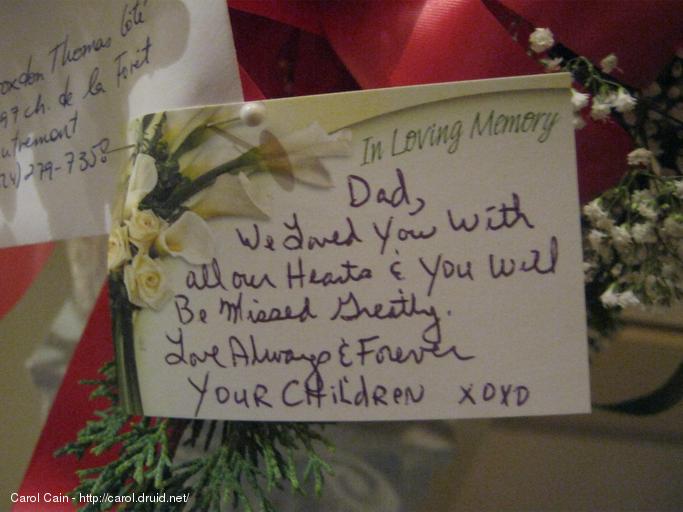 Thomas Côté
97 ch. de la Forêt
utremont
279-7358
In Loving Memory
Dad,
We Loved You With
all our Hearts & You Will
Be Missed Greatly.
Love Always & Forever
YOUR CHILDREN XOXO
Carol Cain - http://carol.druid.net/